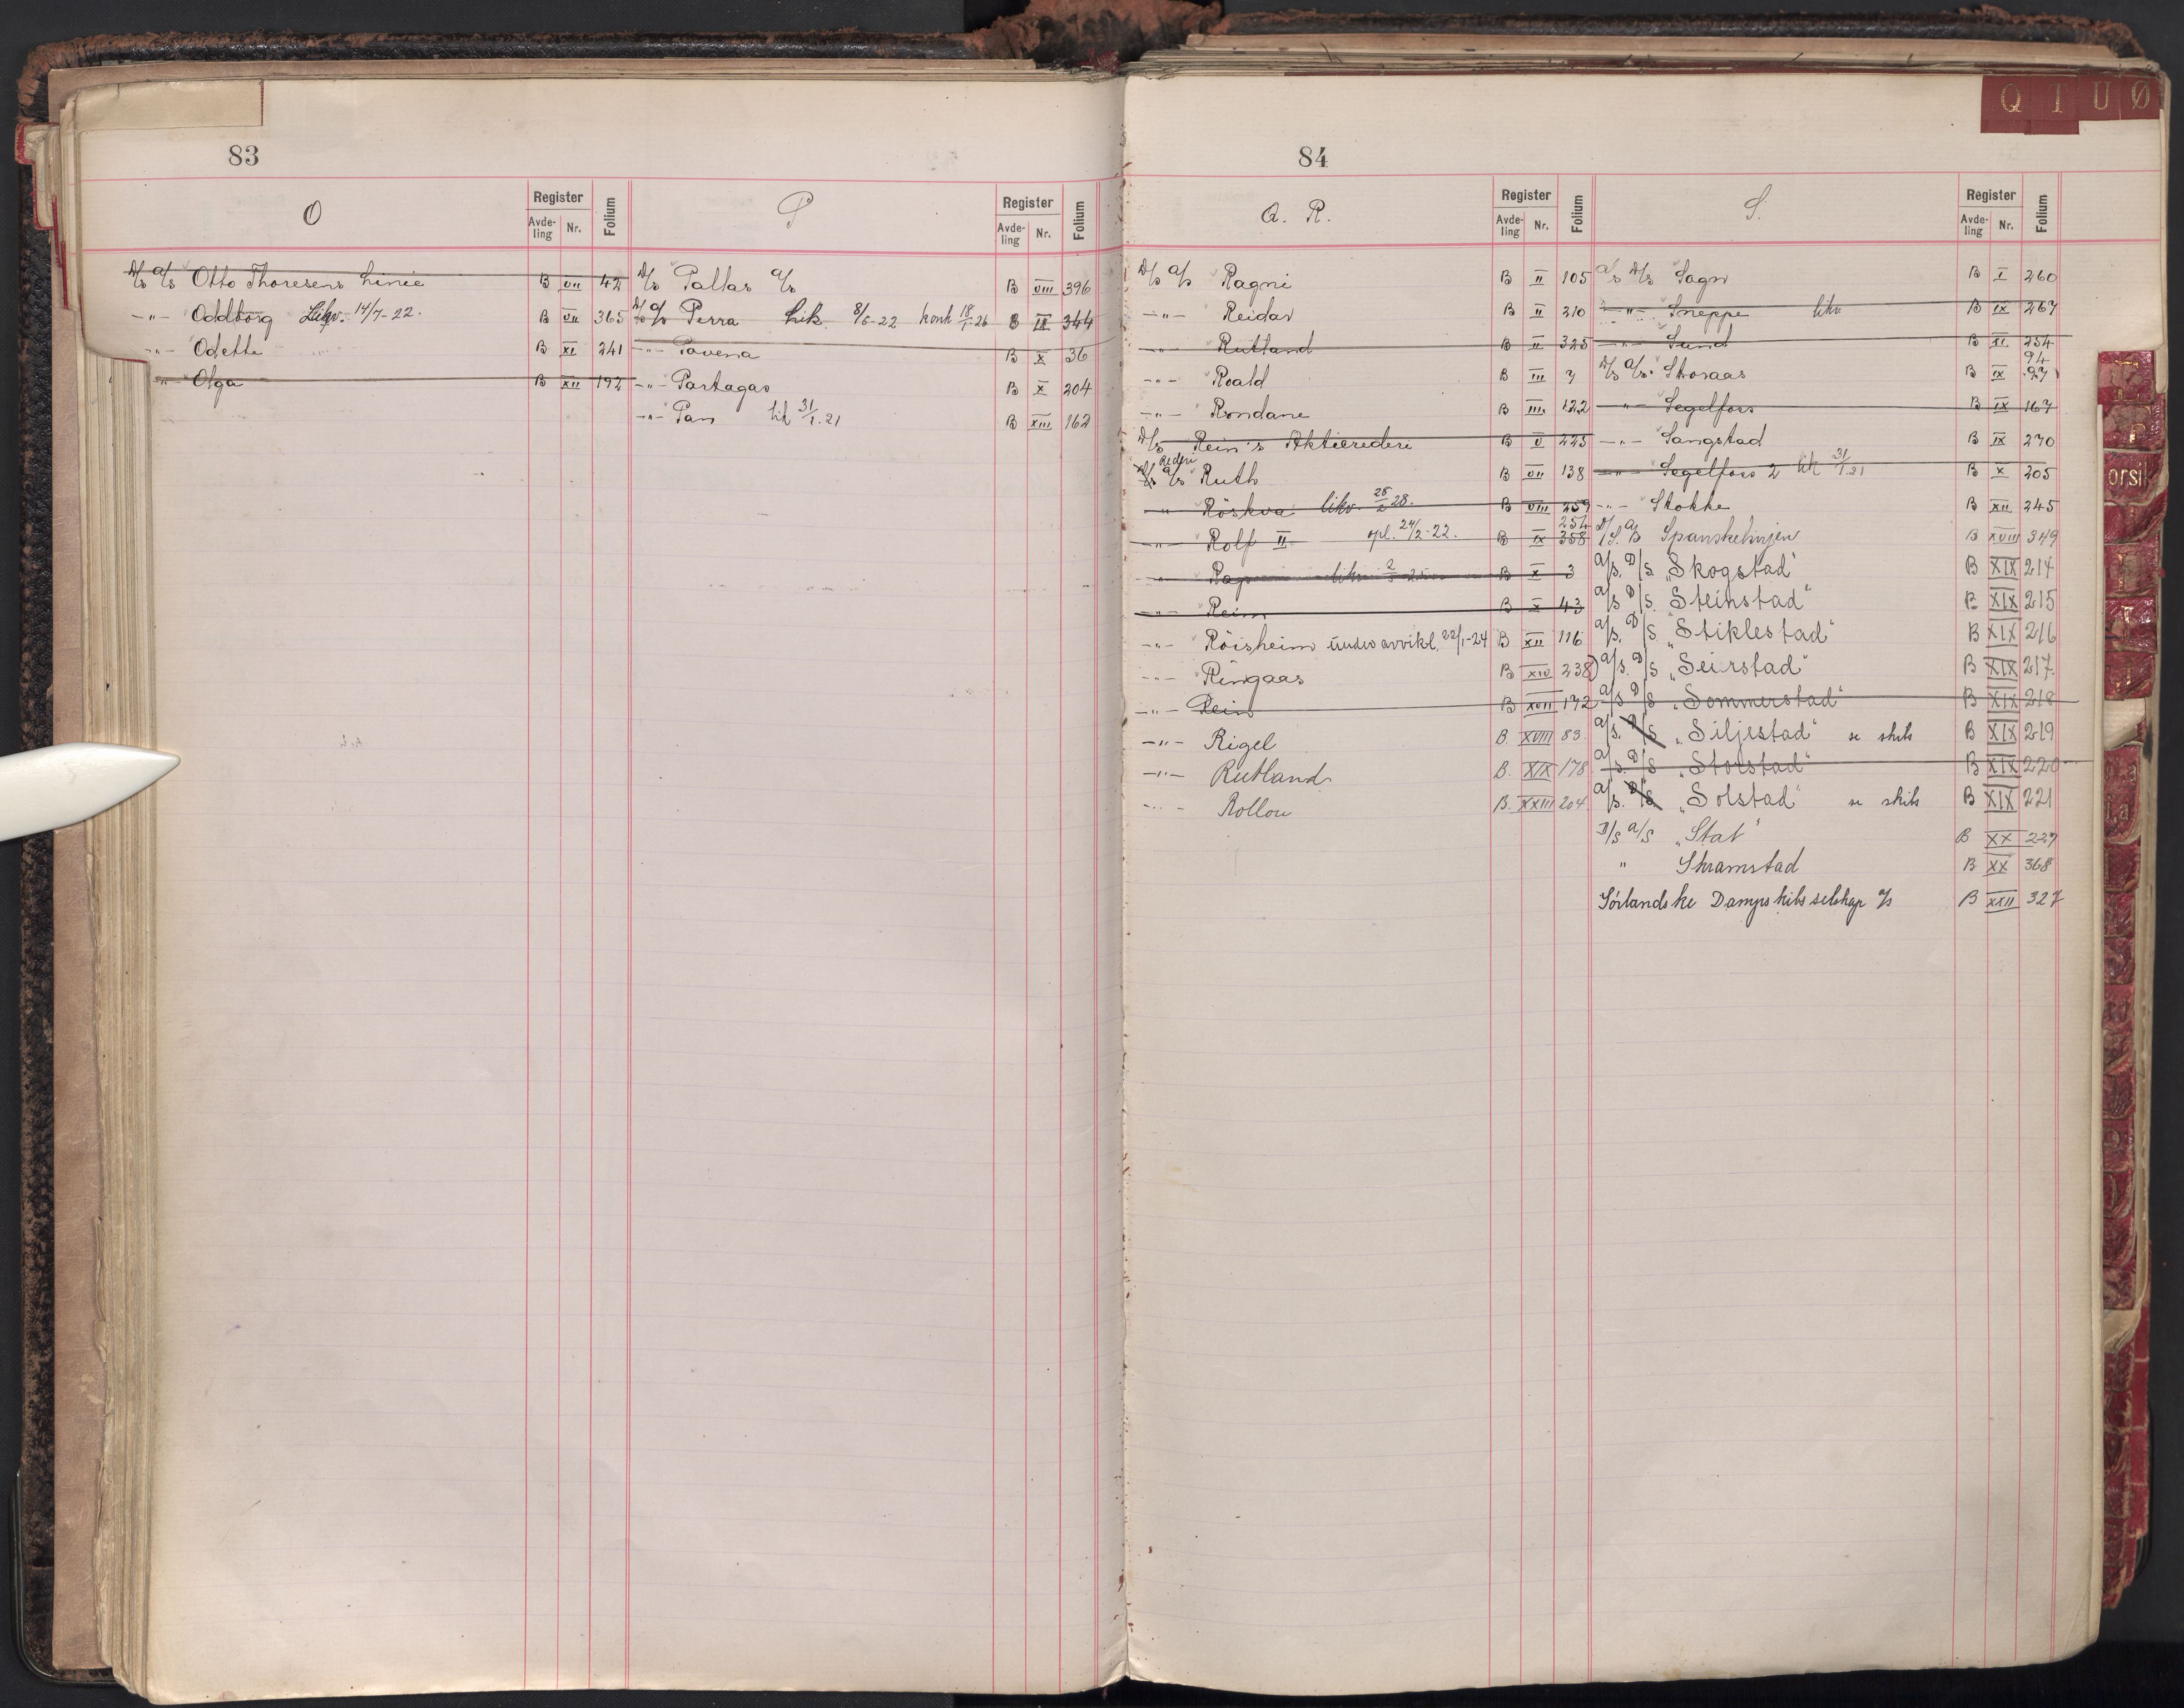 Q T U Ø
83
O
Register
Avde-ling Nr. Folium
D/s A/s Otto Thoresens Linie B VII 42
-"- Oddborg Likv. 14/7-22. B VII 365
-"- Odette B XI 241
-"- Olga B XII 192
P
Register
Avde-ling Nr. Folium
D/s Pallas A/s B VIII 396
D/s A/s Perra Lik. 8/5-22 konk 18/1-26 B IX 344
-"- Pavena B X 36
-"- Partagas B X 204
-"- Pan lik 31/1.21 B XIII 162
84
Q. R.
Register
Avde-ling Nr. Folium
D/s A/s Ragni B II 105
-"- Reidar B II 210
-"- Rutland B II 325
-"- Roald B III 7
-"- Rondane B III 122
D/s Rein's Aktierederi B V 225
Rederi
D/s A/s Ruth B VII 138
-"- Röskva likv. 28/2 28. B VIII 259
254
-"- Rolf II opl. 24/2-22. B IX 358
-"- Rap likv B X 3
-"- Rein B X 43
-"- Röisheim under avvikl. 22/1-24 B XII 116
-"- Ringaas B XIV 238
-"- Rein B XVII 172
-"- Rigel B. XVIII 83.
-"- Rutland B. XIX 178
-"- Rollon B. XXIII 204
S.
Register
Avde-ling Nr. Folium
A/s D/s Sagn B I 260
-"- Sneppe likv B IX 267
-"- Sund B XI 254
94
D/s A/s Storaas B IX 97
-"- Segelfors B IX 167
-"- Sangstad B IX 270
-"- Segelfors 2 lik 31/1 21 B X 205
-"- Stokke B XII 245
D/S. A/S Spanskelinjen B XVIII 349
A/S. D/S. "Skogstad" B XIX 214
A/S D/S. "Steinstad" B XIX 215
A/S. D/S "Stiklestad" B XIX 216
A/S. D/S "Seierstad" B XIX 217.
A/S D/S "Sommerstad" B XIX 218
A/S. D/S "Siljestad" se skibs B XIX 219
A/S. D/S "Storstad" B XIX 220
A/S. D/S "Solstad" se skibs B XIX 221
D/S A/S "Stat" B XX 227
" Skramstad B XX 368
Sørlandske Dampskibsselskap A/s B XXII 327